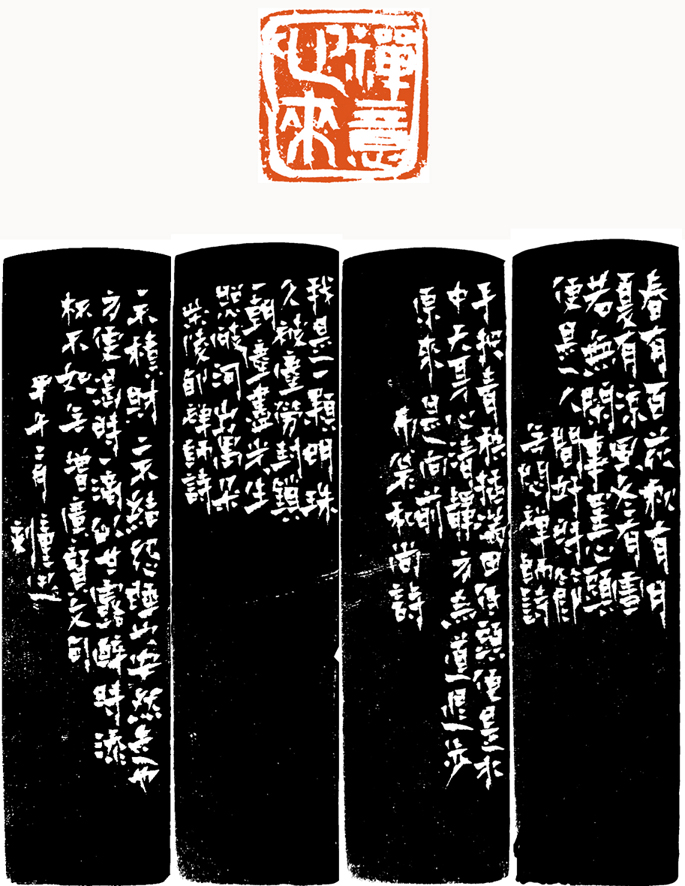 禪意
來
春有百花秋有月
夏有涼風冬有雪
若無閑事罣心頭
便是人間好時節
无悶禪師詩
手把青秧插滿田低頭便是水
中天身心清靜方為道退步
原來是向前
布袋和尚詩
我是一顆明珠
久被塵勞封鎖
一朝塵盡光生
照破河山萬朵
柴陵郁禪師詩
一不積財二不結怨睡也安然走也
方便渴時一滴如甘露醉時添
杯不如无增廣賢文句
甲午二月
刻